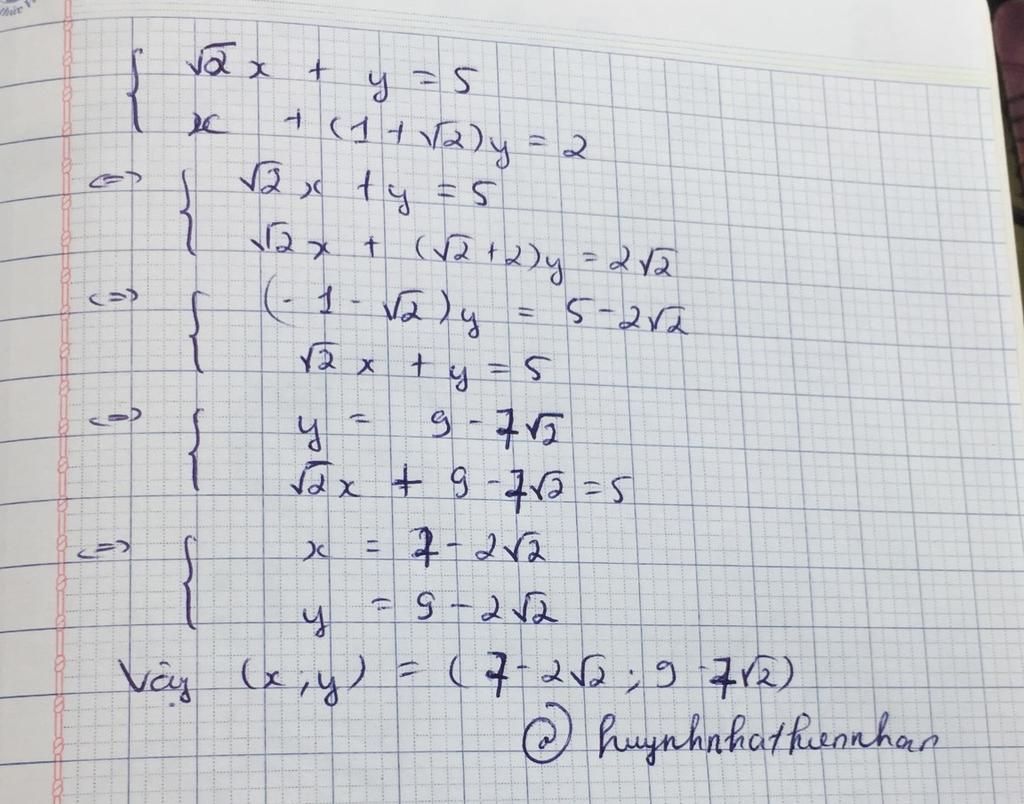 √2 x + y = 5
x + (1 + √2)y = 2
<=> √2 x + y = 5
√2 x + (√2 + 2)y = 2√2
<=> (- 1 - √2)y = 5 - 2√2
√2 x + y = 5
<=> y = 9 - 7√2
√2 x + 9 - 7√2 = 5
<=> x = 7 - 2√2
y = 9 - 2√2
Vậy (x, y) = (7 - 2√2 ; 9 - 7√2)
@ huynhnhathiennhan